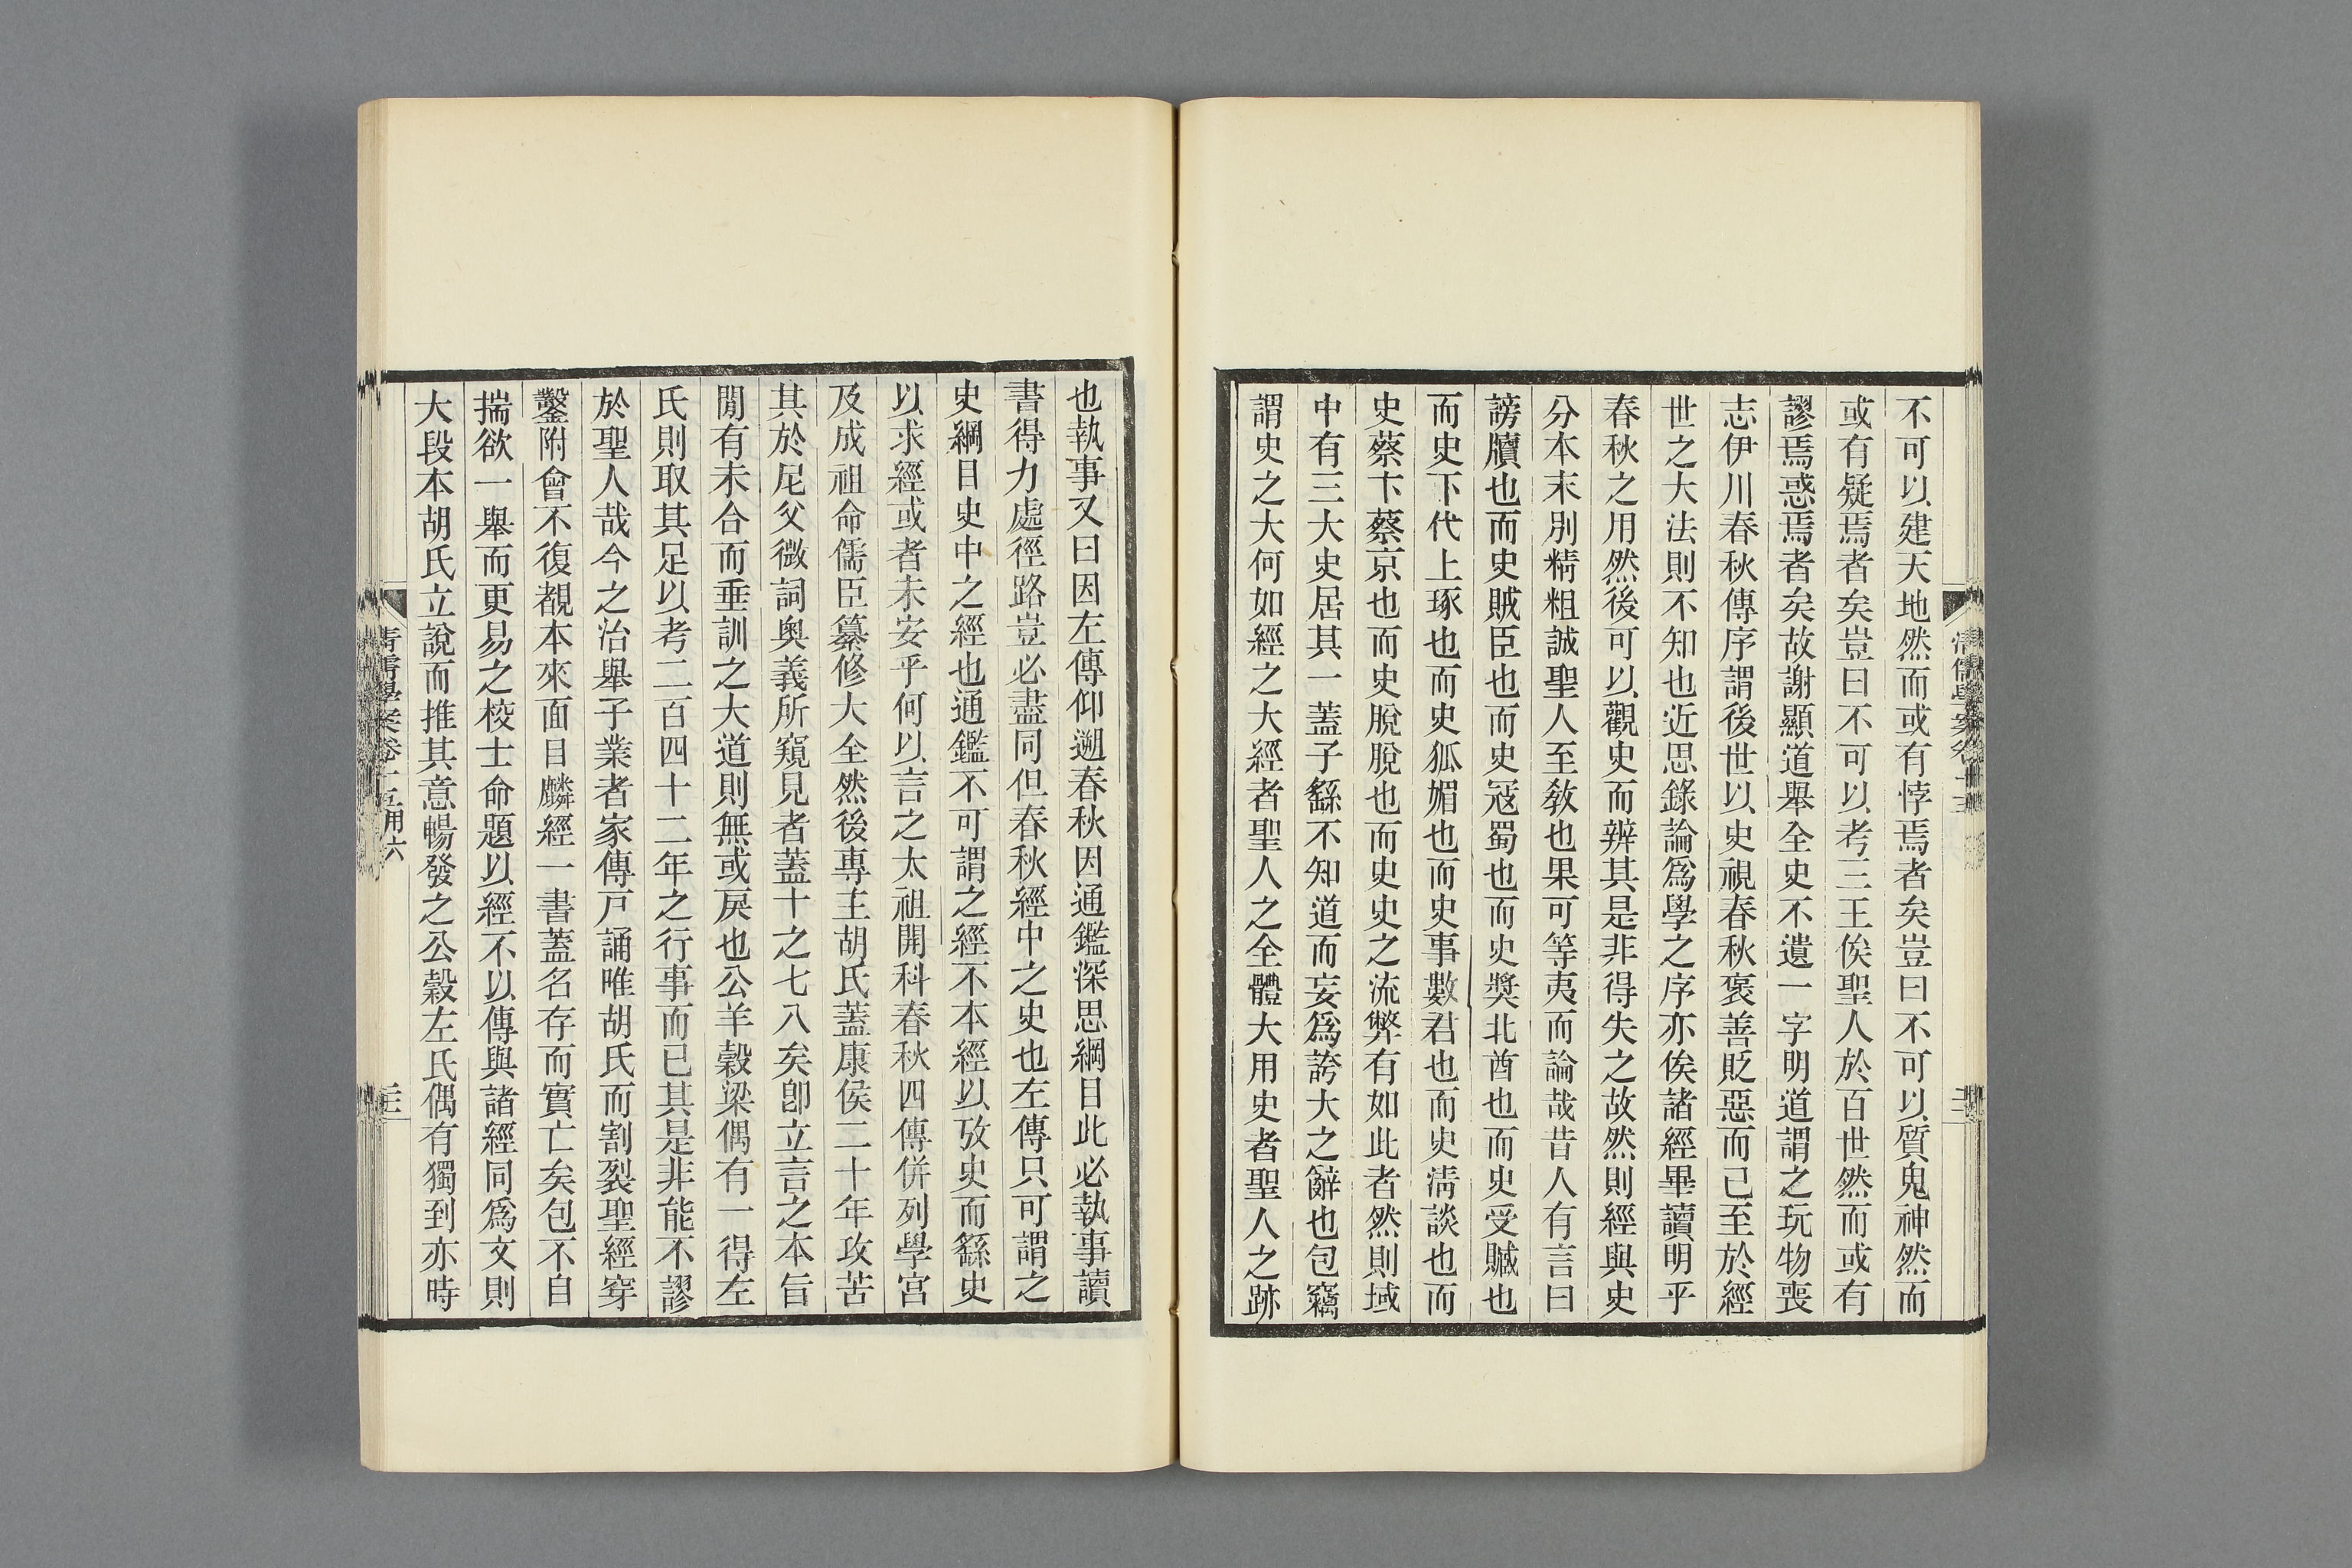 不可以建天地然而或有悖焉者矣豈曰不可以質鬼神然而
或有疑焉者矣豈曰不可以考三王俟聖人於百世然而或有
謬焉惑焉者矣故謝顯道舉全史不遺一字明道謂之玩物喪
志伊川春秋傳序謂後世以史視春秋褒善貶惡而已至於經
世之大法則不知也近思錄論爲學之序亦俟諸經畢讀明乎
春秋之用然後可以觀史而辨其是非得失之故然則經與史
分本末別精粗誠聖人至敎也果可等夷而論哉昔人有言曰
謗牘也而史賊臣也而史寇蜀也而史獎北酋也而史受贓也
而史下代上琢也而史狐媚也而史事數君也而史淸談也而
史蔡卞蔡京也而史脫脫也而史史之流弊有如此者然則域
中有三大史居其一蓋子繇不知道而妄爲誇大之辭也包竊
謂史之大何如經之大經者聖人之全體大用史者聖人之跡
也執事又曰因左傳仰遡春秋因通鑑深思綱目此必執事讀
書得力處徑路豈必盡同但春秋經中之史也左傳只可謂之
史綱目史中之經也通鑑不可謂之經不本經以攷史而繇史
以求經或者未安乎何以言之太祖開科春秋四傳倂列學宮
及成祖命儒臣纂修大全然後專主胡氏蓋康侯二十年攻苦
其於尼父微詞奧義所窺見者蓋十之七八矣卽立言之本旨
閒有未合而垂訓之大道則無或戾也公羊穀梁偶有一得左
氏則取其足以考二百四十二年之行事而已其是非能不謬
於聖人哉今之治舉子業者家傳戸誦唯胡氏而割裂聖經穿
鑿附會不復覩本來面目麟經一書蓋名存而實亡矣包不自
揣欲一舉而更易之校士命題以經不以傳與諸經同爲文則
大段本胡氏立說而推其意暢發之公穀左氏偶有獨到亦時